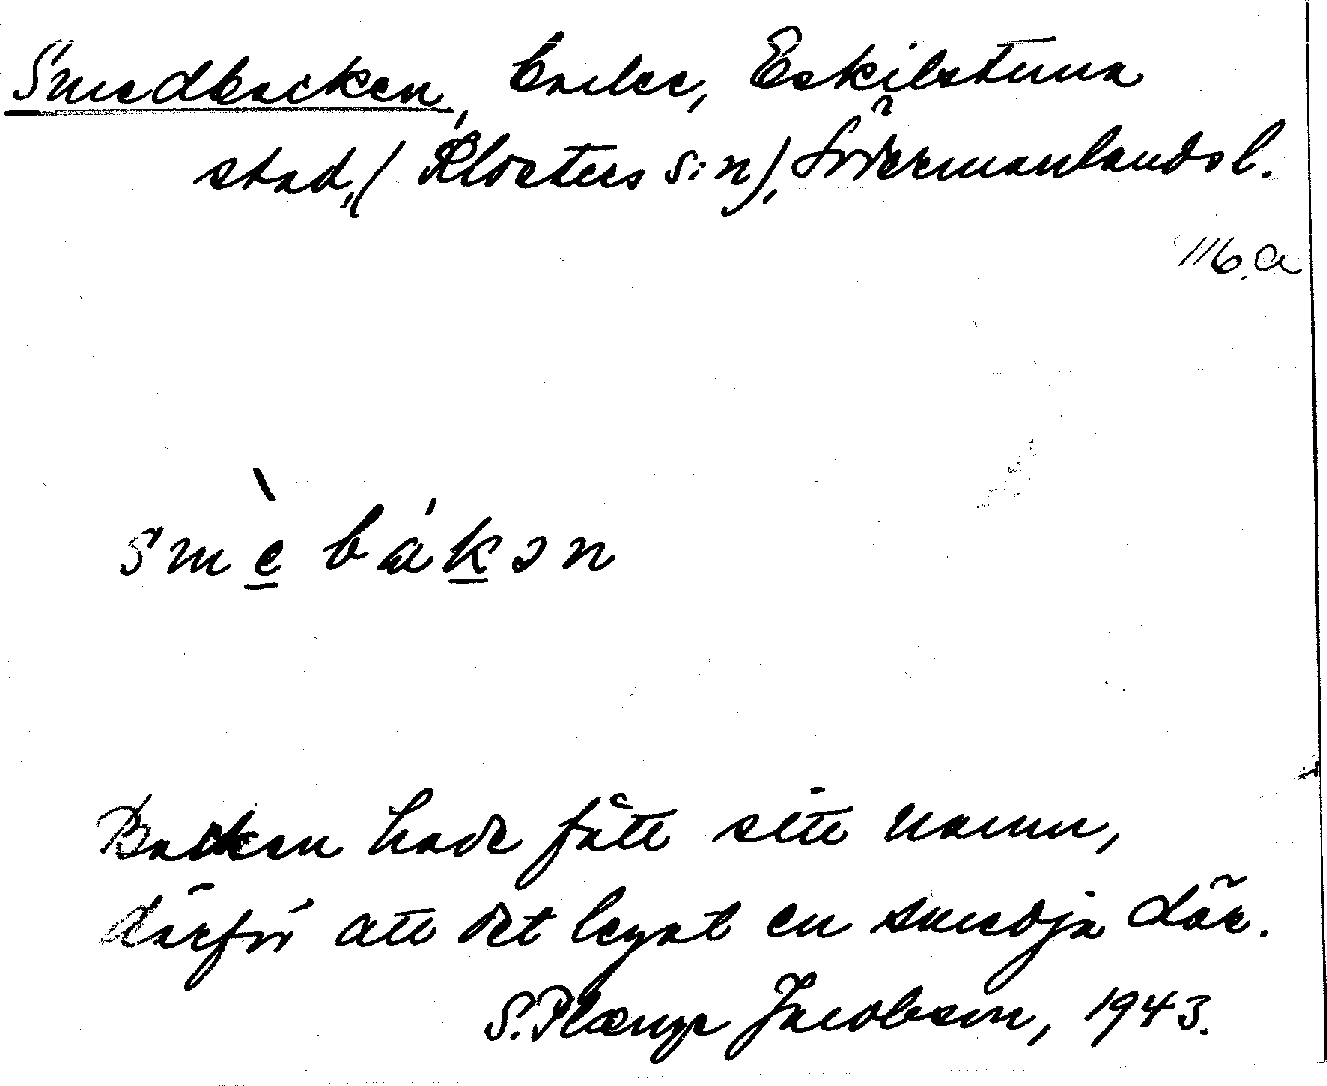 Smedbacken, backe, Eskilstuna
stad, (Klosters sn), Södermanlands l.
116.a
smèbákən
Backen hade fått sitt namn,
därför att det legat en smedja där.
S. Plænge Jacobson, 1943.